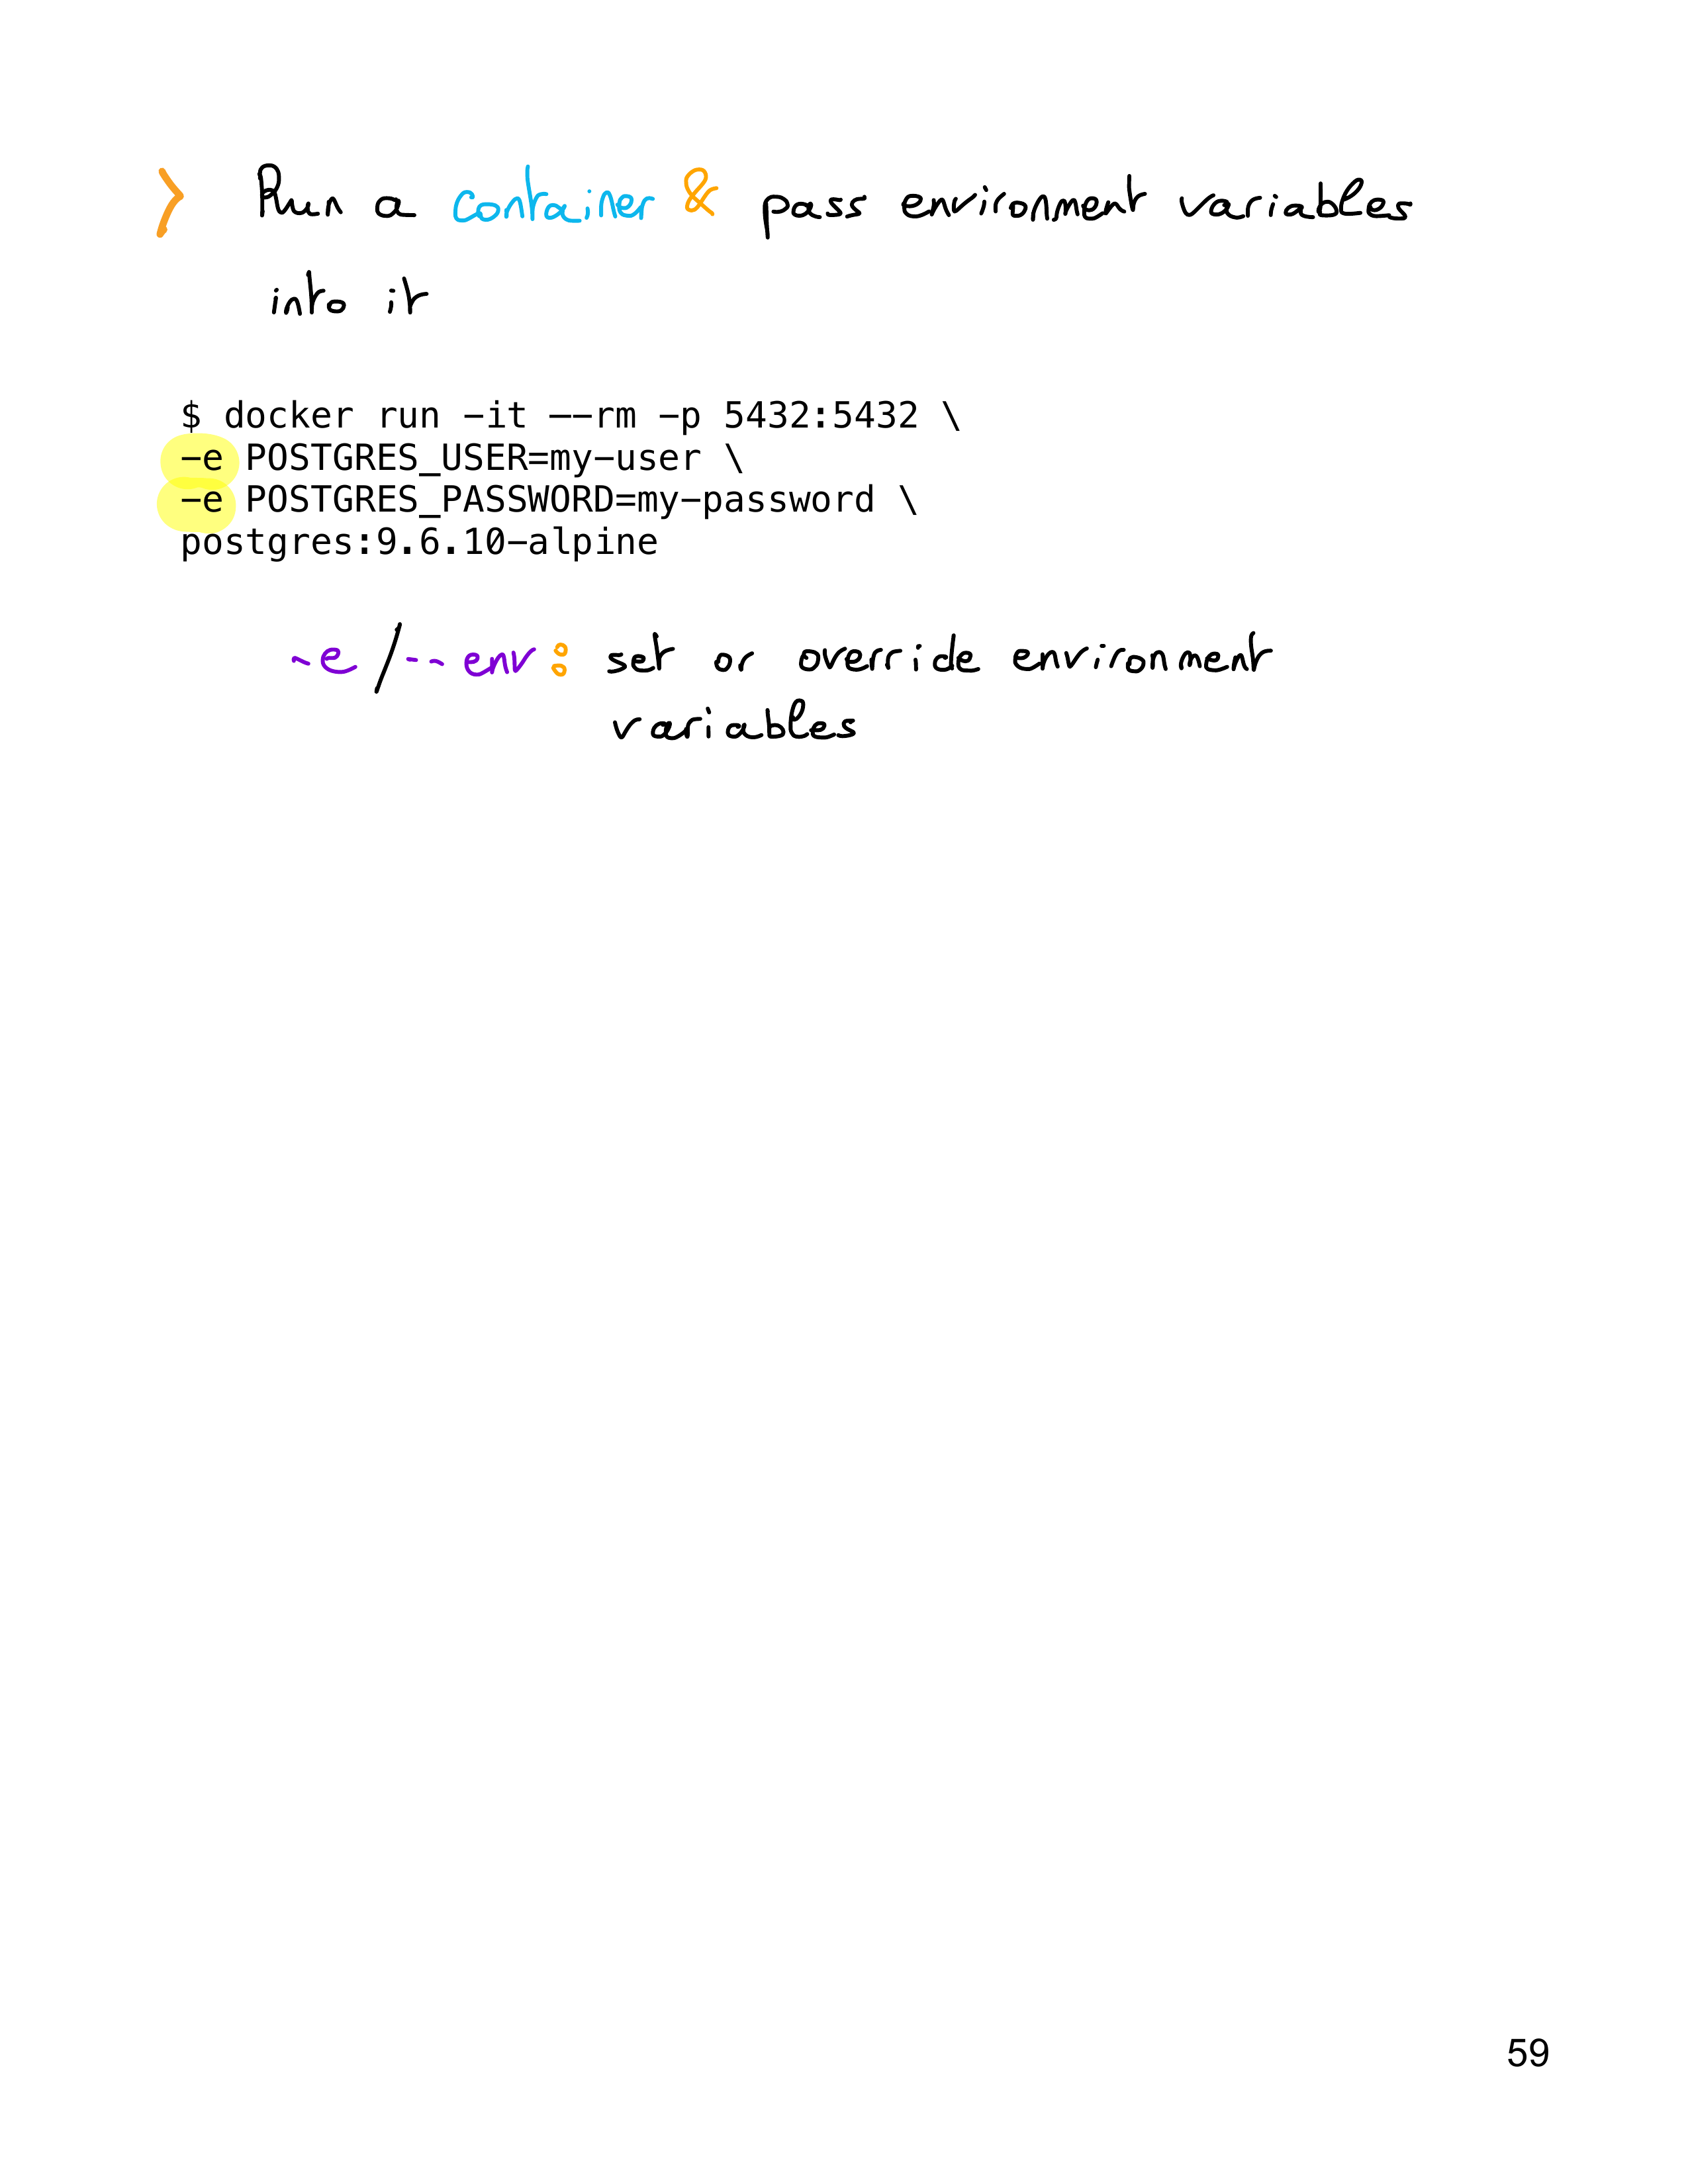 > Run a container & pass environment variables
into it
$ docker run -it --rm -p 5432:5432 \
-e POSTGRES_USER=my-user \
-e POSTGRES_PASSWORD=my-password \
postgres:9.6.10-alpine
-e / --env: set or override environment
variables
59